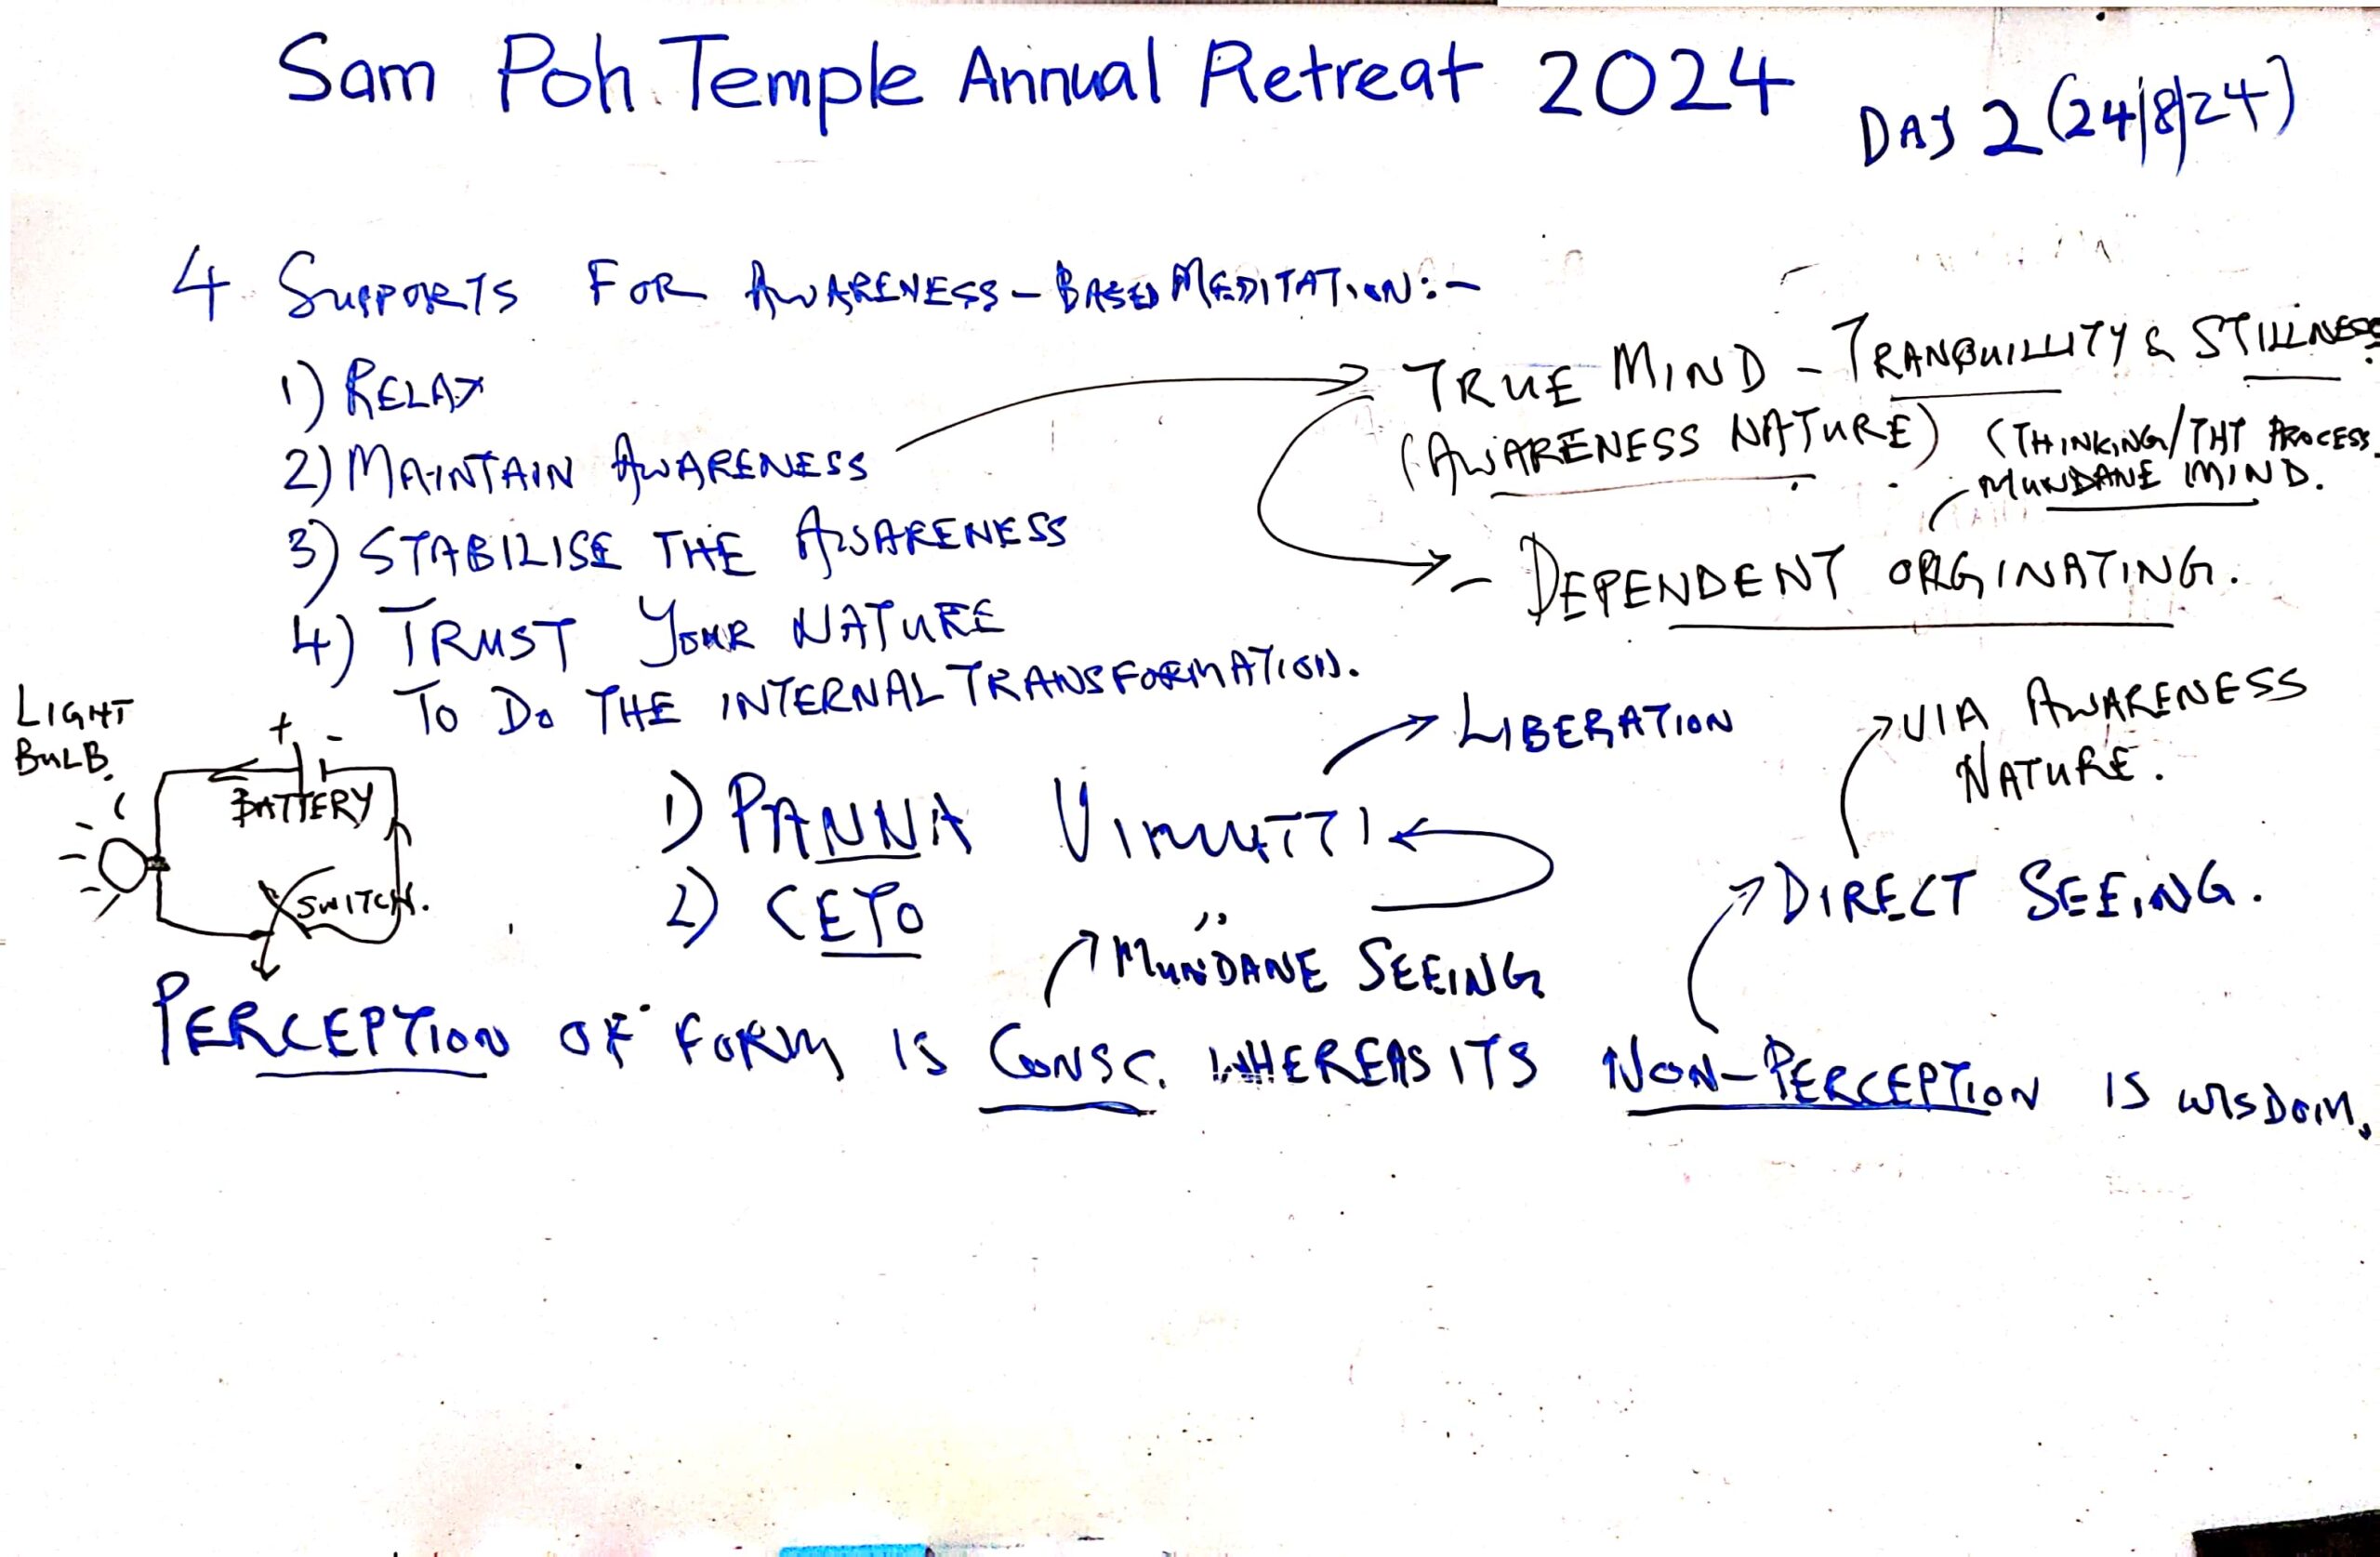 Sam Poh Temple Annual Retreat 2024
DAY 2 (24/8/24)
4 SUPPORTS FOR AWARENESS-BASED MEDITATION:-
1) RELAX
2) MAINTAIN AWARENESS
3) STABILISE THE AWARENESS
4) TRUST YOUR NATURE
TO DO THE INTERNAL TRANSFORMATION.
TRUE MIND - TRANQUILLITY & STILLNESS.
(AWARENESS NATURE)
(THINKING/THT PROCESS.
MUNDANE MIND.
- DEPENDENT ORGINATING.
LIGHT
BULB.
+ -
BATTERY
SWITCH.
1) PANNA VIMUTTI
LIBERATION
2) CETO "
VIA AWARENESS
NATURE.
DIRECT SEEING.
MUNDANE SEEING
PERCEPTION OF FORM IS CONSC. WHEREAS ITS NON-PERCEPTION IS WISDOM.